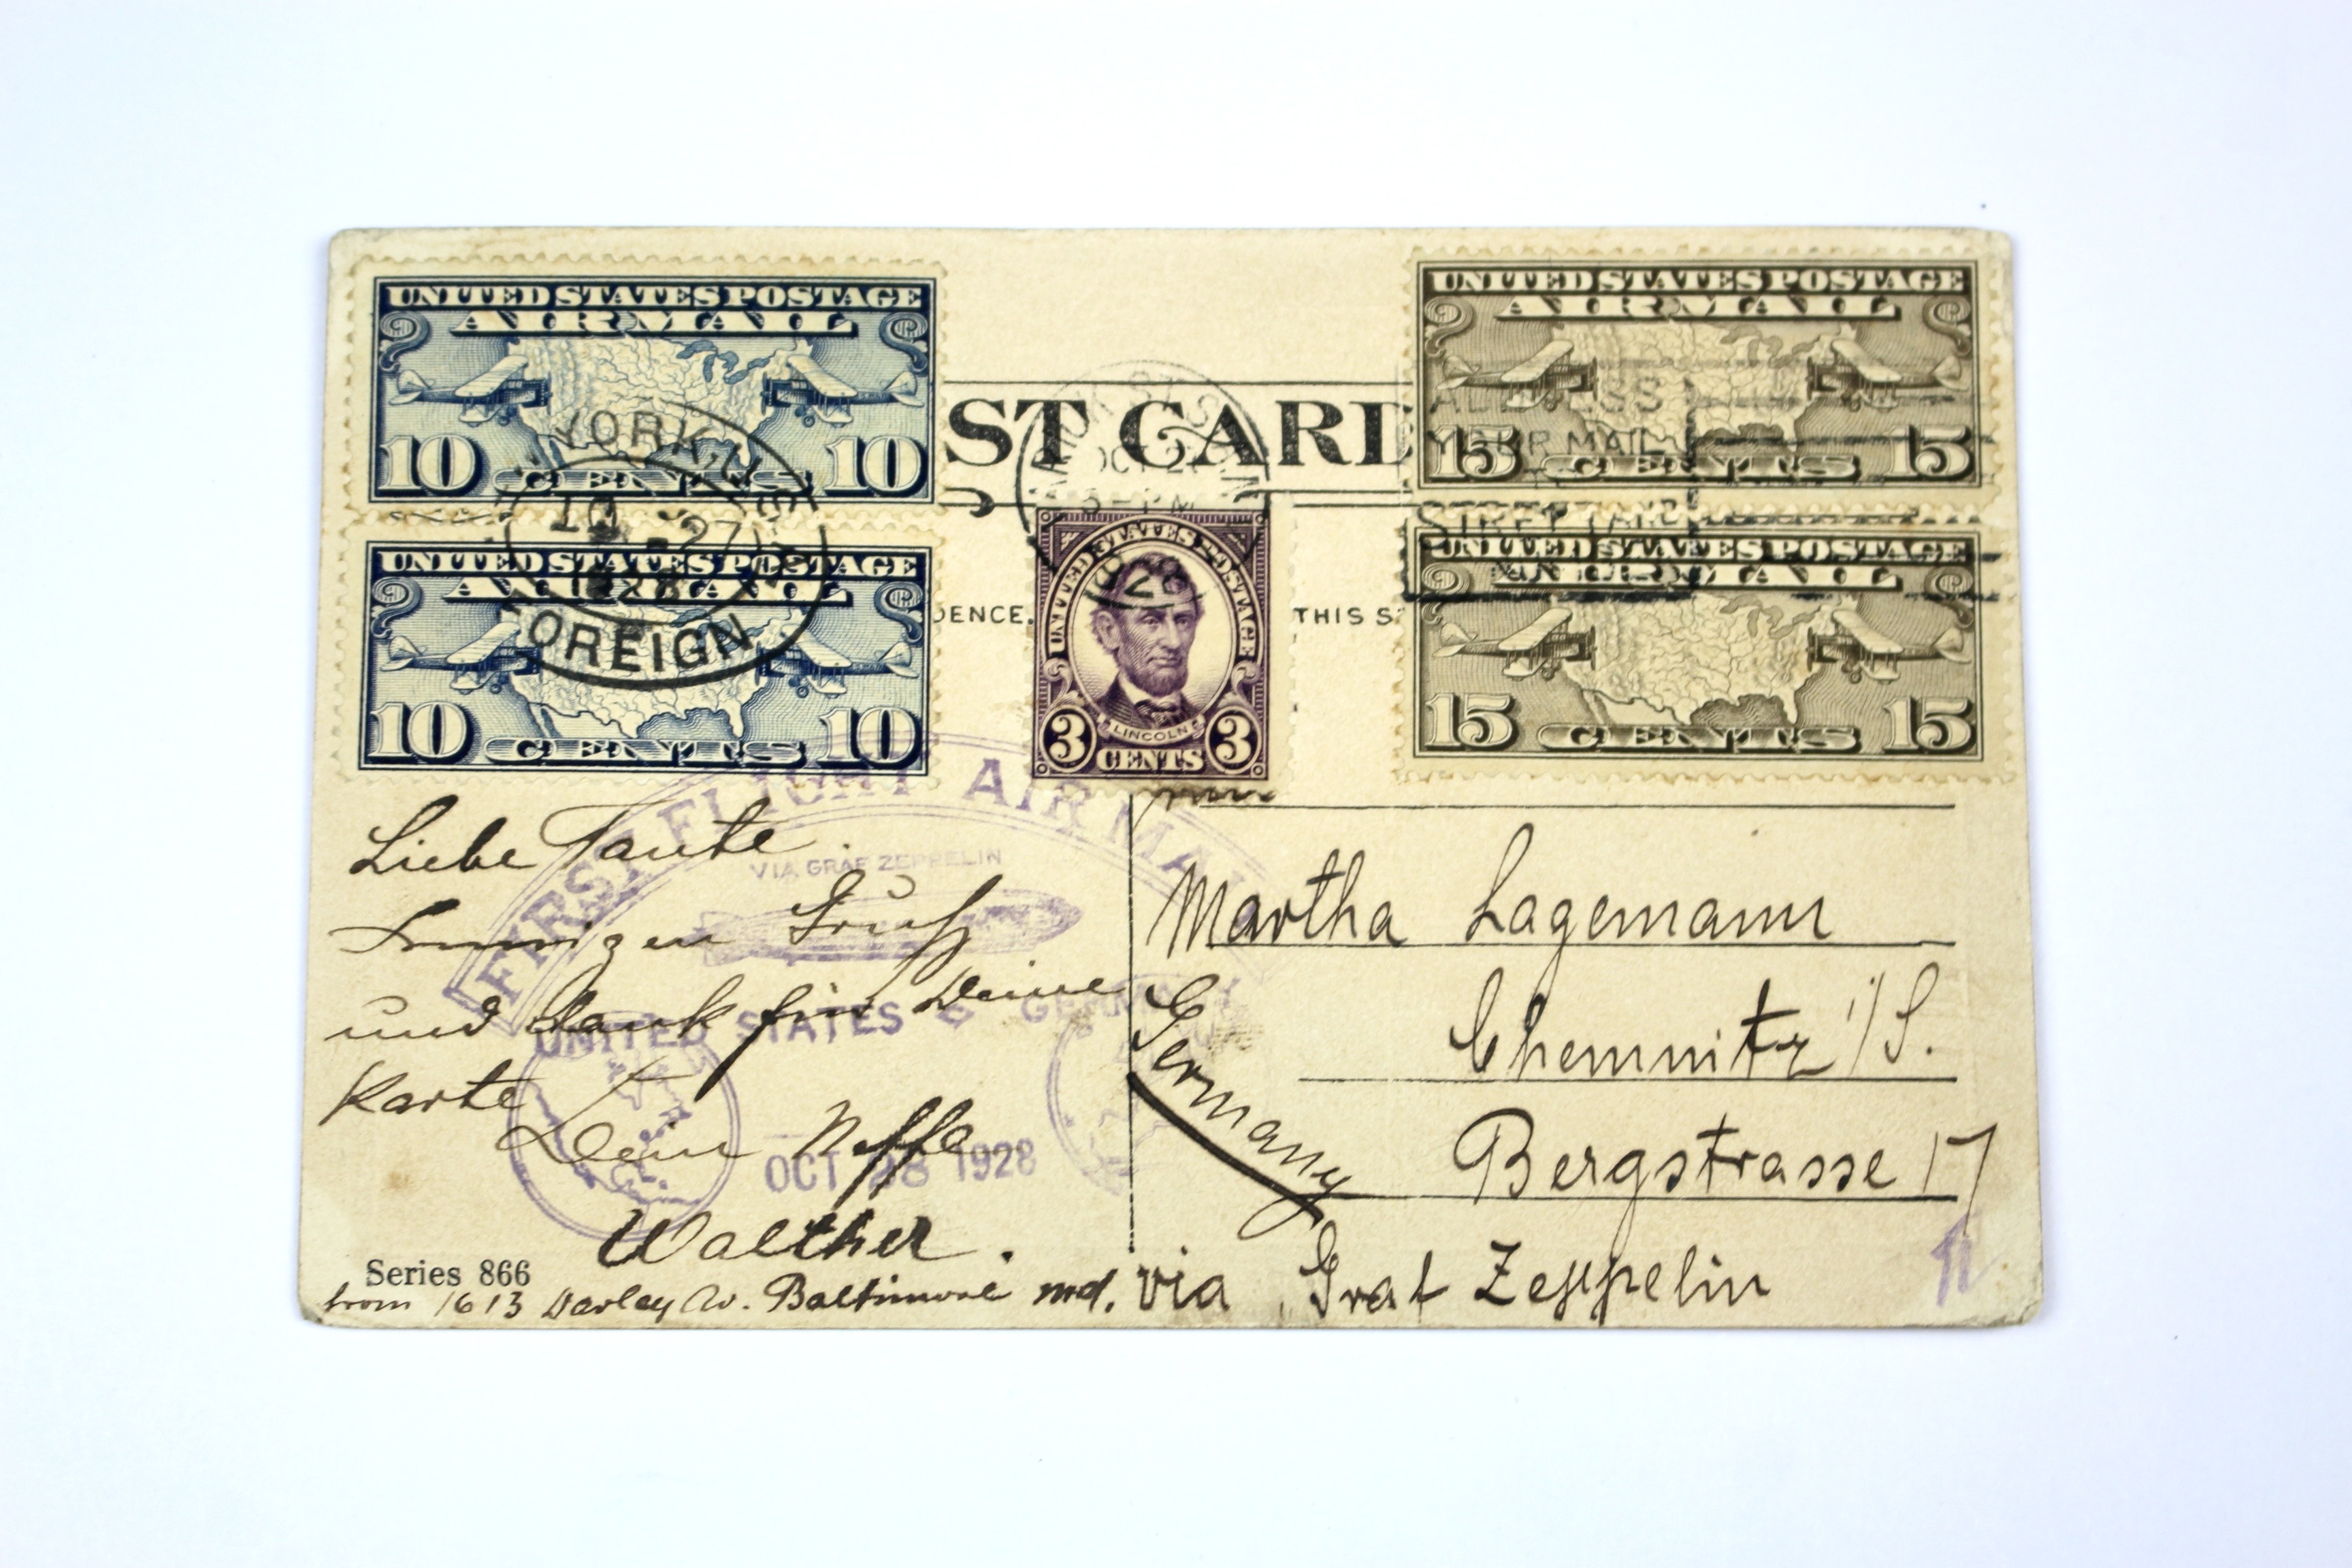 UNITED STATES POSTAGE
AIR MAIL
10 CENTS 10
UNITED STATES POSTAGE
AIR MAIL
10 CENTS 10
YORK, N.
10 -27
1928
OREIGN
ST CARD
DENCE.
THIS S
OCT 2
PM
1928
UNITED STATES POSTAGE
LINCOLN
3 CENTS 3
UNITED STATES POSTAGE
AIR MAIL
15 CENTS 15
ADDRESS
YOUR MAIL
STREET AND
UNITED STATES POSTAGE
AIR MAIL
15 CENTS 15
FIRST FLIGHT AIR MAIL
VIA GRAF ZEPPELIN
UNITED STATES GERMANY
OCT 28 1928
Liebe Tante.
Innigen Gruß
und Dank für Deine
Karte
Dein Neffe
Walther.
Series 866
from 1613 Darley Av. Baltimore md.
Martha Lagemann
Chemnitz i/S.
Germany
Bergstrasse 17
via Graf Zeppelin